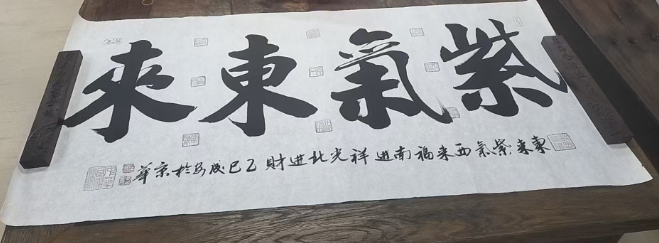 紫氣東來
東來紫氣西來福南進祥光北進財乙巳歲書於京華